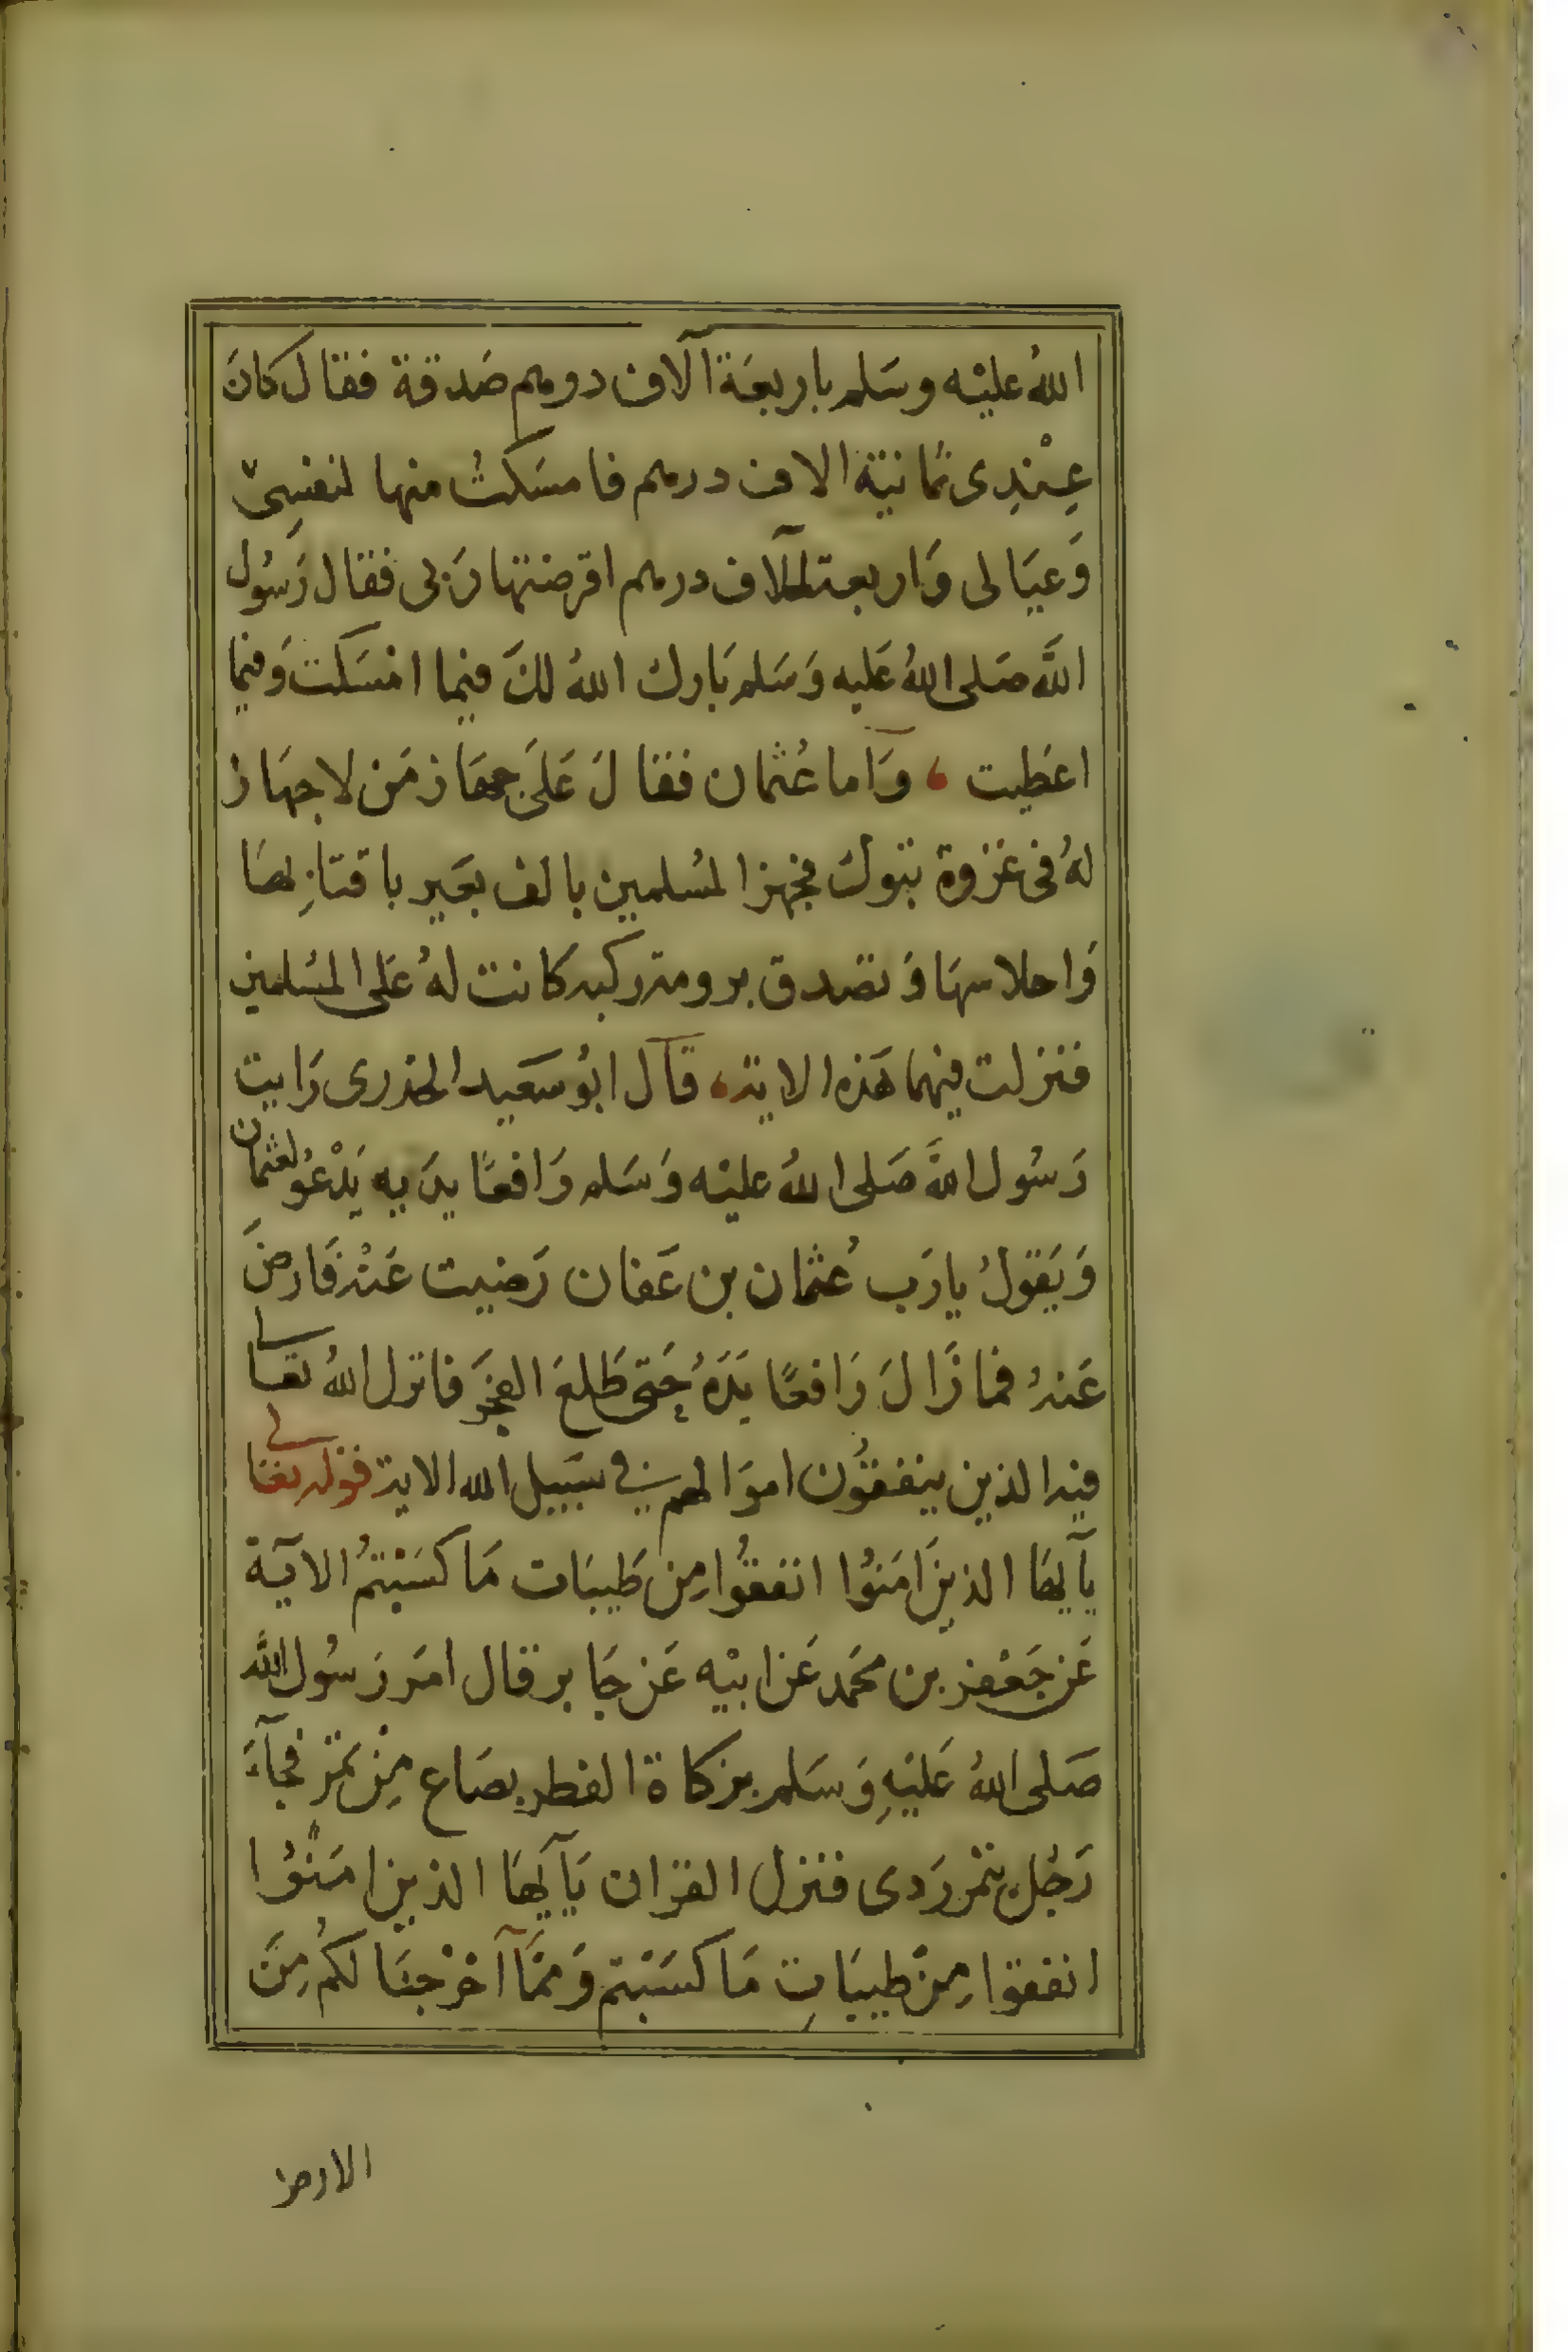 اللهُ عليْه وسَلم باربعَة آلاف درهم صَدقة فقال كانَ
عِنْدِى ثمانية الاف درهم فامسَكتُ منها لنفسِىّ
وَعيَالى وَاربعة الآلاف درهم اقرضتها رَبى فقال رَسُول
اللَّه صَلى اللهُ عَليه وَسَلم بَارك اللهُ لكَ فيما امْسَكت وَفيما
اعطيت ، وَاما عُثمان فقالَ عَلَىَّ جهَاز مَن لا جهَاز
لهُ فى غزوة تبوك فجهز المُسلمين بالف بعَير باقتابِهَا
وَاحلاسهَا وَتصدق برومة ركية كانت لهُ عَلى المسُلمين
فنزلت فيهما هَذه الاية ، قال ابُو سَعيد الخدرى رَايت
رَسُول اللهَّ صَلى اللهُ عليْه وَسَلم رَافعًا يدَيه يَدْعُو لعثمان
وَيَقولُ يا رَب عُثمان بن عَفان رَضيت عَنْهُ فَارضَ
عَنهُ فما زَالَ رَافعًا يَدَهُ حَتى طَلعَ الفجَر فانزل اللهُ تعالى
فيه الذين ينفقُون اموَالهم في سَبيل الله الاية قوله تعالى
يآيهَا الذينَ امَنوُا انفقُوا مِن طَيبَات مَا كسَبْتمُ الآية
عَن جَعْفر بن محَمد عَن ابيْه عَن جَابر قال امَر رَسُول اللَّه
صَلى اللهُ عَليْهِ وَسَلم بزكاة الفطر بصَاع مِنْ تمَرْ فجَآءَ
رَجُل بتمْر رَدى فنزل القرَان يَآيهَا الذين امَنُوْا
انفقوا مِنْ طيبَاتِ مَا كسَبْتم وَممَّآ اخرْجنَا لكمُ مِنَ
الارض